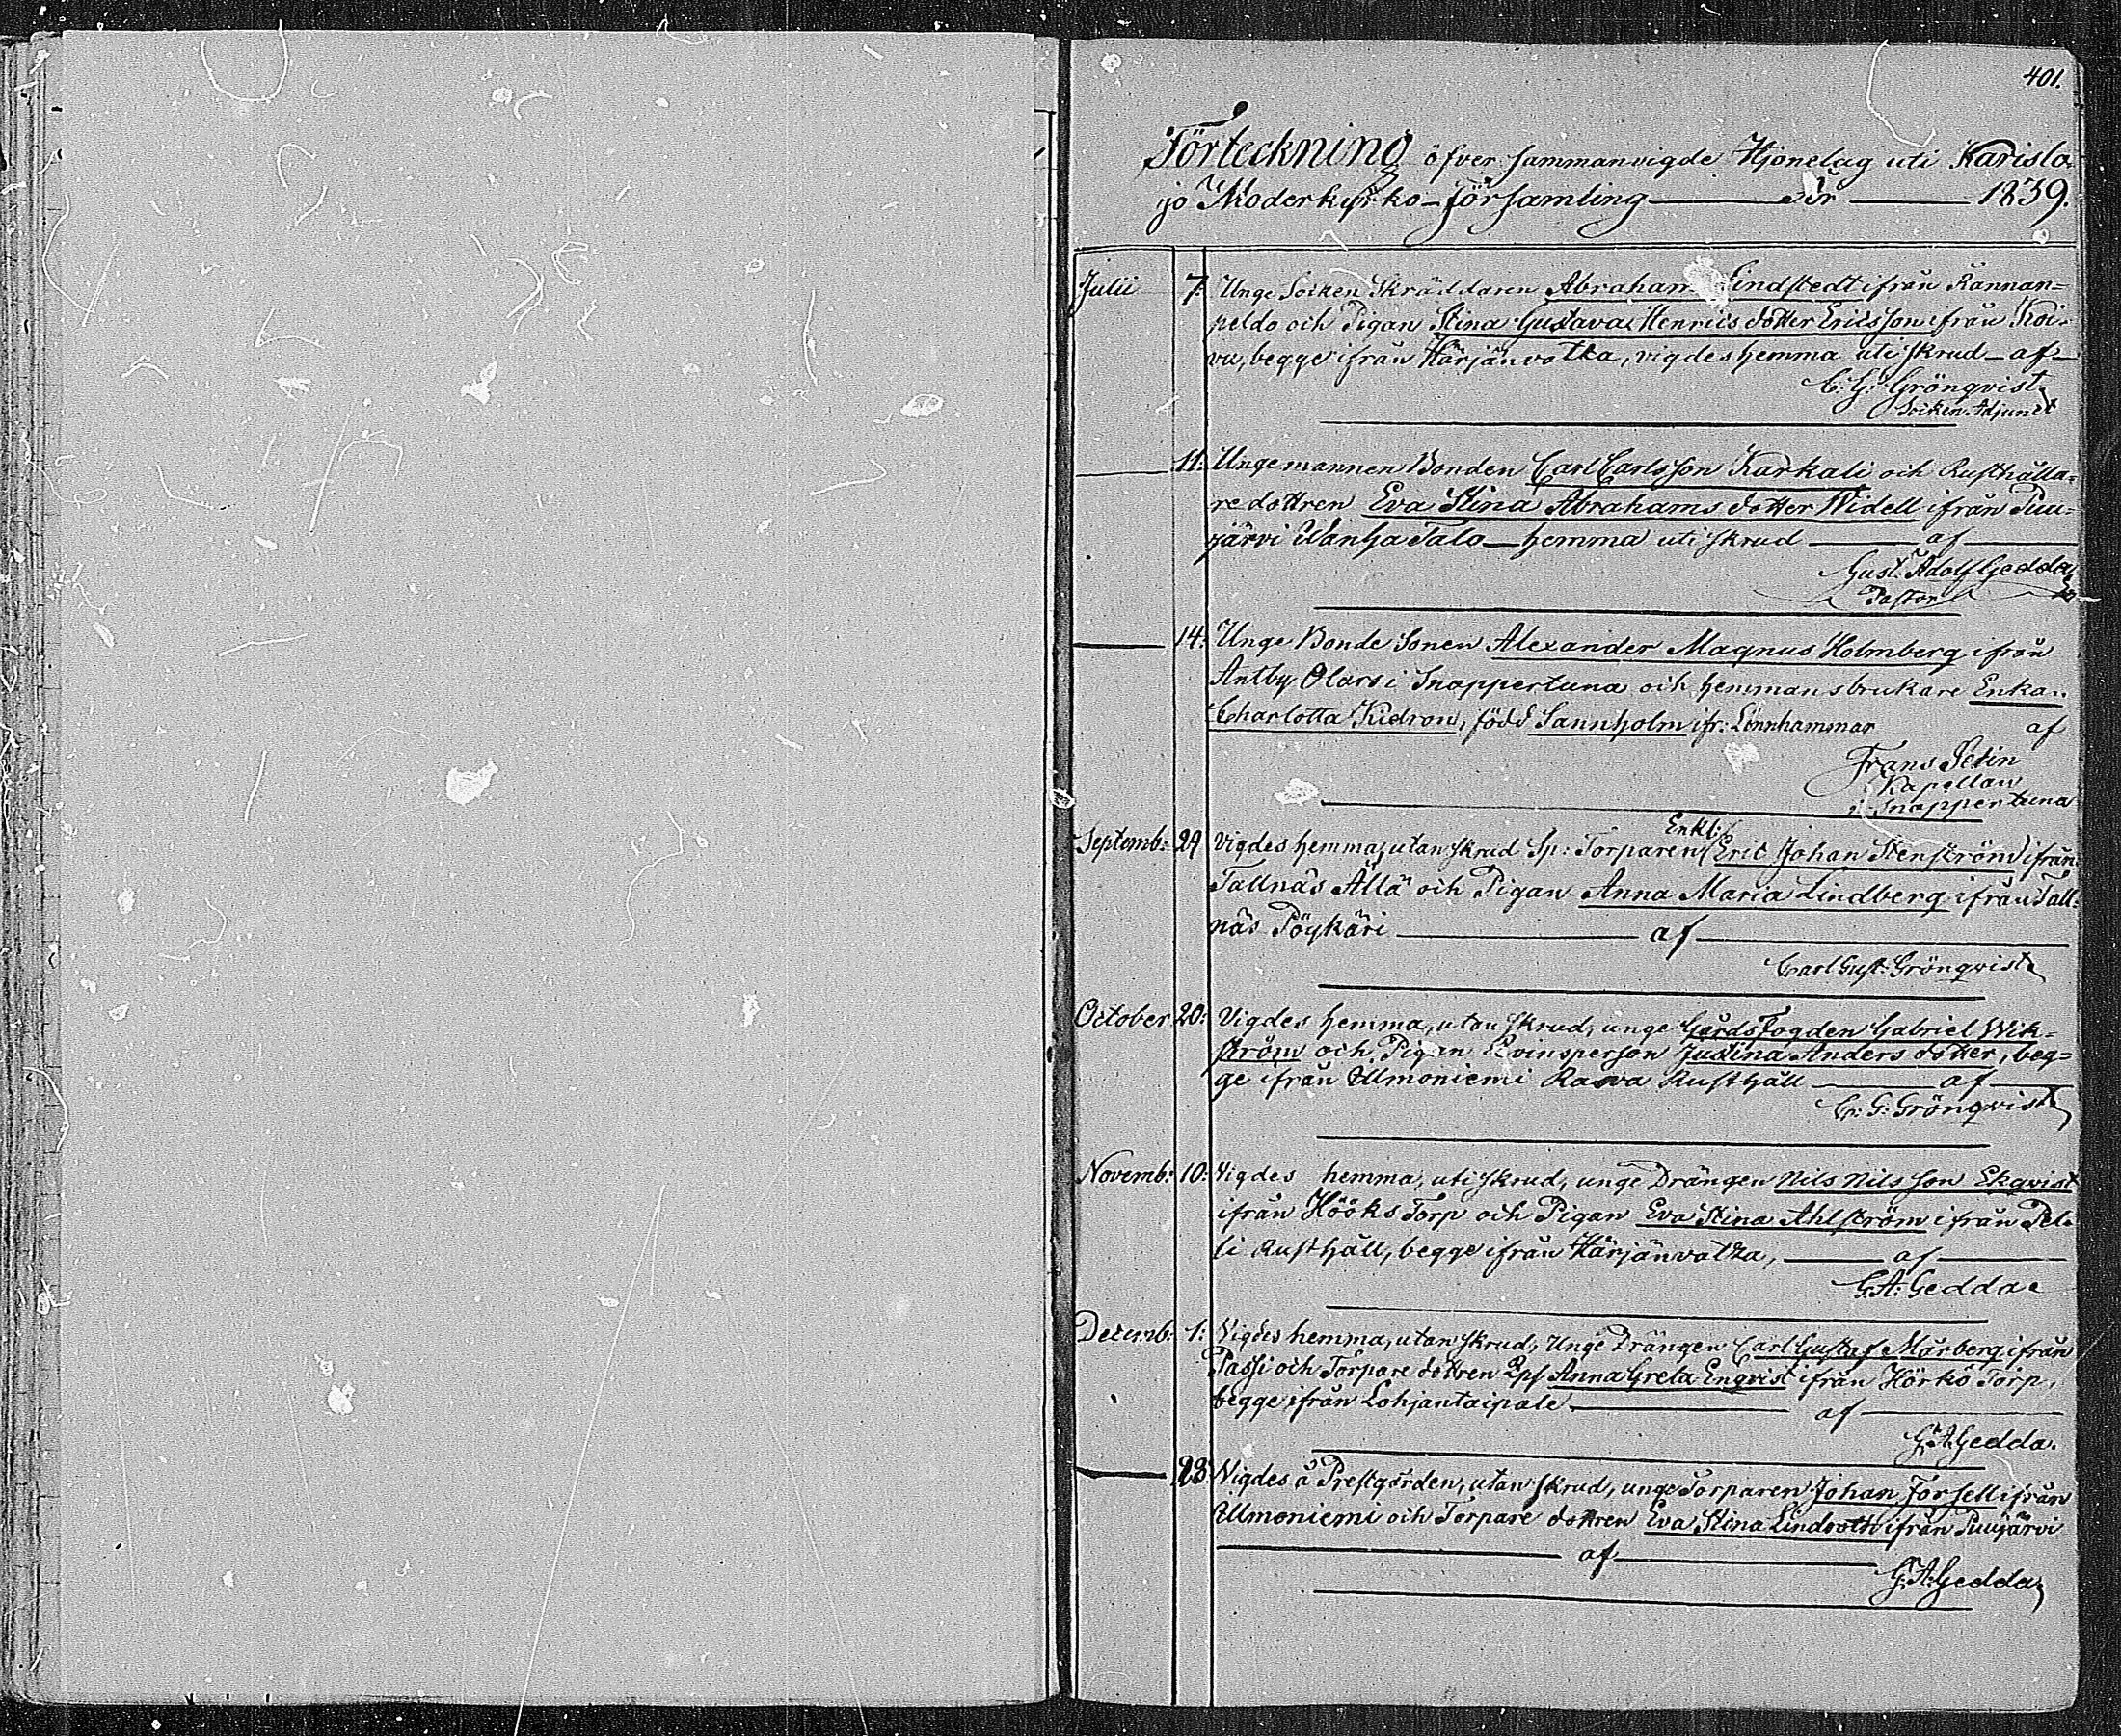 401.
Förteckning öfver sammanvigde Hjonelag uti Karislo-
jo Moderkyrko-Församling — År — 1839.
Julii 7. Unge Socken Skräddaren Abraham Lindstedt ifrån Rännan-
peldo och Pigan Stina Gustava Henricsdotter Ericsson ifrån Koi-
vu, begge ifrån Härjänvatka, vigdes hemma uti skrud — af —
C: G: Grönqvist
Socken Adjunct
— 11: Unge mannen Bonden Carl Carlsson Karkali och Rusthålla-
redottren Eva Stina Abrahamsdotter Widell ifrån Puu-
järvi Wanha Talo — hemma uti skrud — af —
Gust: Adolf Gedda
Pastor
— 14: Unge Bonde Sonen Alexander Magnus Holmberg ifrån
Antby Olars i Snappertuna och hemmansbrukare Enkan
Charlotta Kidron, född Sannholm ifr: Lönnhammar af
Frans
Kapellan
i Snappertuna
Enkl:
Septemb: 29 Vigdes hemma, utan skrud Sp: Torparen Eric Johan Stenström ifrån
Tallnäs Ällä och Pigan Anna Maria Lindberg ifrån Tall-
näs Pöykäri — af —
Carl Gust: Grönqvist
October 20: Vigdes hemma, utan skrud, unge Gårdsfogden Gabriel Wik-
ström och Pigan Qvinsperson Justina Andersdotter, beg-
ge ifrån Ilmoniemi Rasva Rusthåll — af —
C: G: Grönqvist
Novemb: 10: Vigdes hemma, uti skrud, unge Drängen Nils Nilsson Ekqvist
ifrån Hööks Torp och Pigan Eva Stina Ahlström ifrån Pel-
li Rusthåll, begge ifrån Härjänvatka, — af —
G.A: Gedda
Decemb: 1: Vigdes hemma, utan skrud, Unge Drängen Carl Gustaf Mårberg ifrån
Passi och Torpare dottren Qps Anna Greta Enqvist ifrån Hörkö Torp,
begge ifrån Lohjantaipale — af —
G: A: Gedda.
— 28: Vigdes å Prestgården, utan skrud, unge Torparen Johan Forsell ifrån
Ilmoniemi och Torpare dottren Eva Stina Lindroth ifrån Puujärvi
— af —
G: A: Gedda